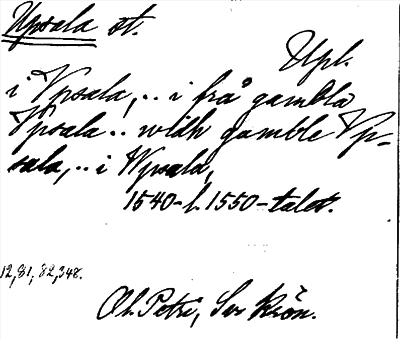 Upsala st.
Upl.
i Vpsala, .. i frå gambla
Vpsala .. widh gamble Vp-
sala, .. i Wpsala,
1540- l. 1550-talet.
12, 81, 82, 348.
Ol. Petri, Sv. Krön.